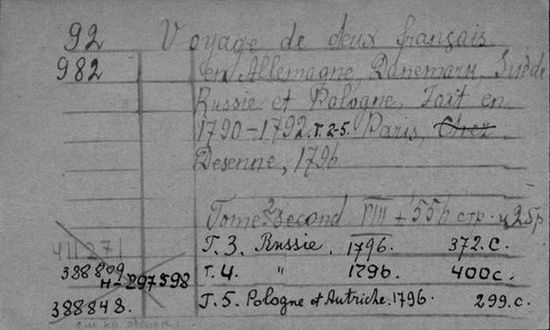 92 Voyage de deux français
982 en Allemagne, Danemark, Suède
Russie et Pologne. Fait en
1790-1792. т. 2-5. Paris, Chez
Desenne, 1796
Tome 2 second VIII + 556 стр. ц 25р
411271 T. 3. Russie. 1796. 372.c.
388809 т. 4. " 1796. 400c.
H-297598
388848. T. 5. Pologne et Autriche. 1796. 299.c.